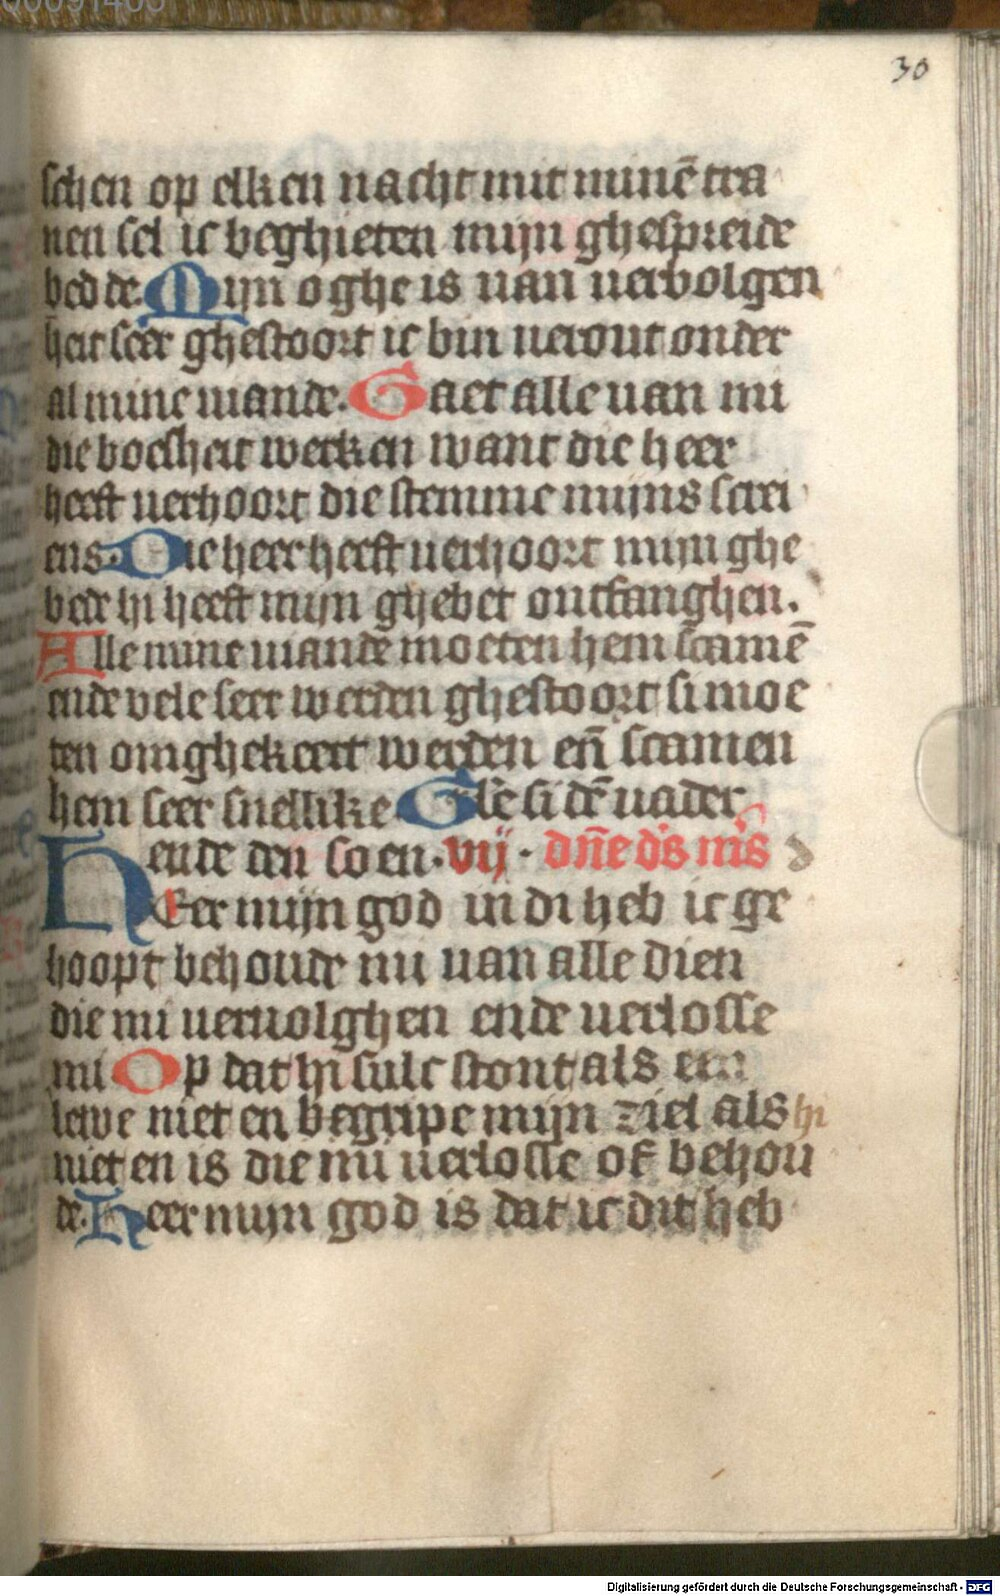 30
schen op elken nacht mit minē tra
nen sel ic beghieten mijn ghespreide
bedde. Mijn oghe is van vervolgen
heit seer ghestoort ic bin verout onder
al mine viande. Gaet alle van mi
die boesheit wercken want die heer
heeft verhoort die stemme mijns screi
ens. Die heer heeft verhoort mijn ghe
bede hi heeft mijn ghebet ontfanghen.
Alle mine viande moeten hem scamē
ende vele seer werden ghestoort si moe
ten omghekeert werden eñ scamen
hem seer snellike Glē si dē vader
ende den soen. vij. dñe ds ms
Heer mijn god in di heb ic ge
hoopt behoude mi van alle dien
die mi vervolghen ende verlosse
mi Op dat hi sulc stont als een
lewe niet en begripe mijn ziel als hi
niet en is die mi verlosse of behou
de. Heer mijn god is dat ic dit heb
Digitalisierung gefördert durch die Deutsche Forschungsgemeinschaft - DFG